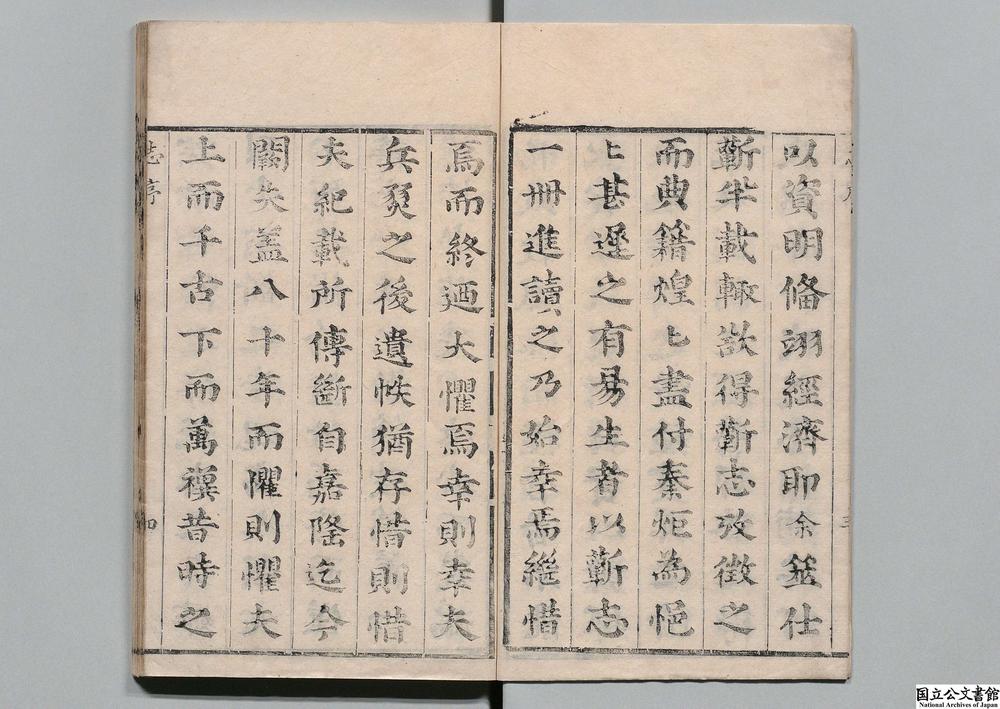 以資明備翊經濟耶余筮仕
蘄半載輙欲得蘄志攷徵之
而典籍煌匕盡付秦炬為悒
匕甚遲之有易生者以蘄志
一冊進讀之乃始幸焉繼惜
焉而終迺大懼焉幸則幸夫
兵燹之後遺帙猶存惜則惜
夫紀載所傳斷自嘉隆迄今
闕矣盖八十年而懼則懼夫
上而千古下而萬禩昔時之
志序
四
三
国立公文書館
National Archives of Japan